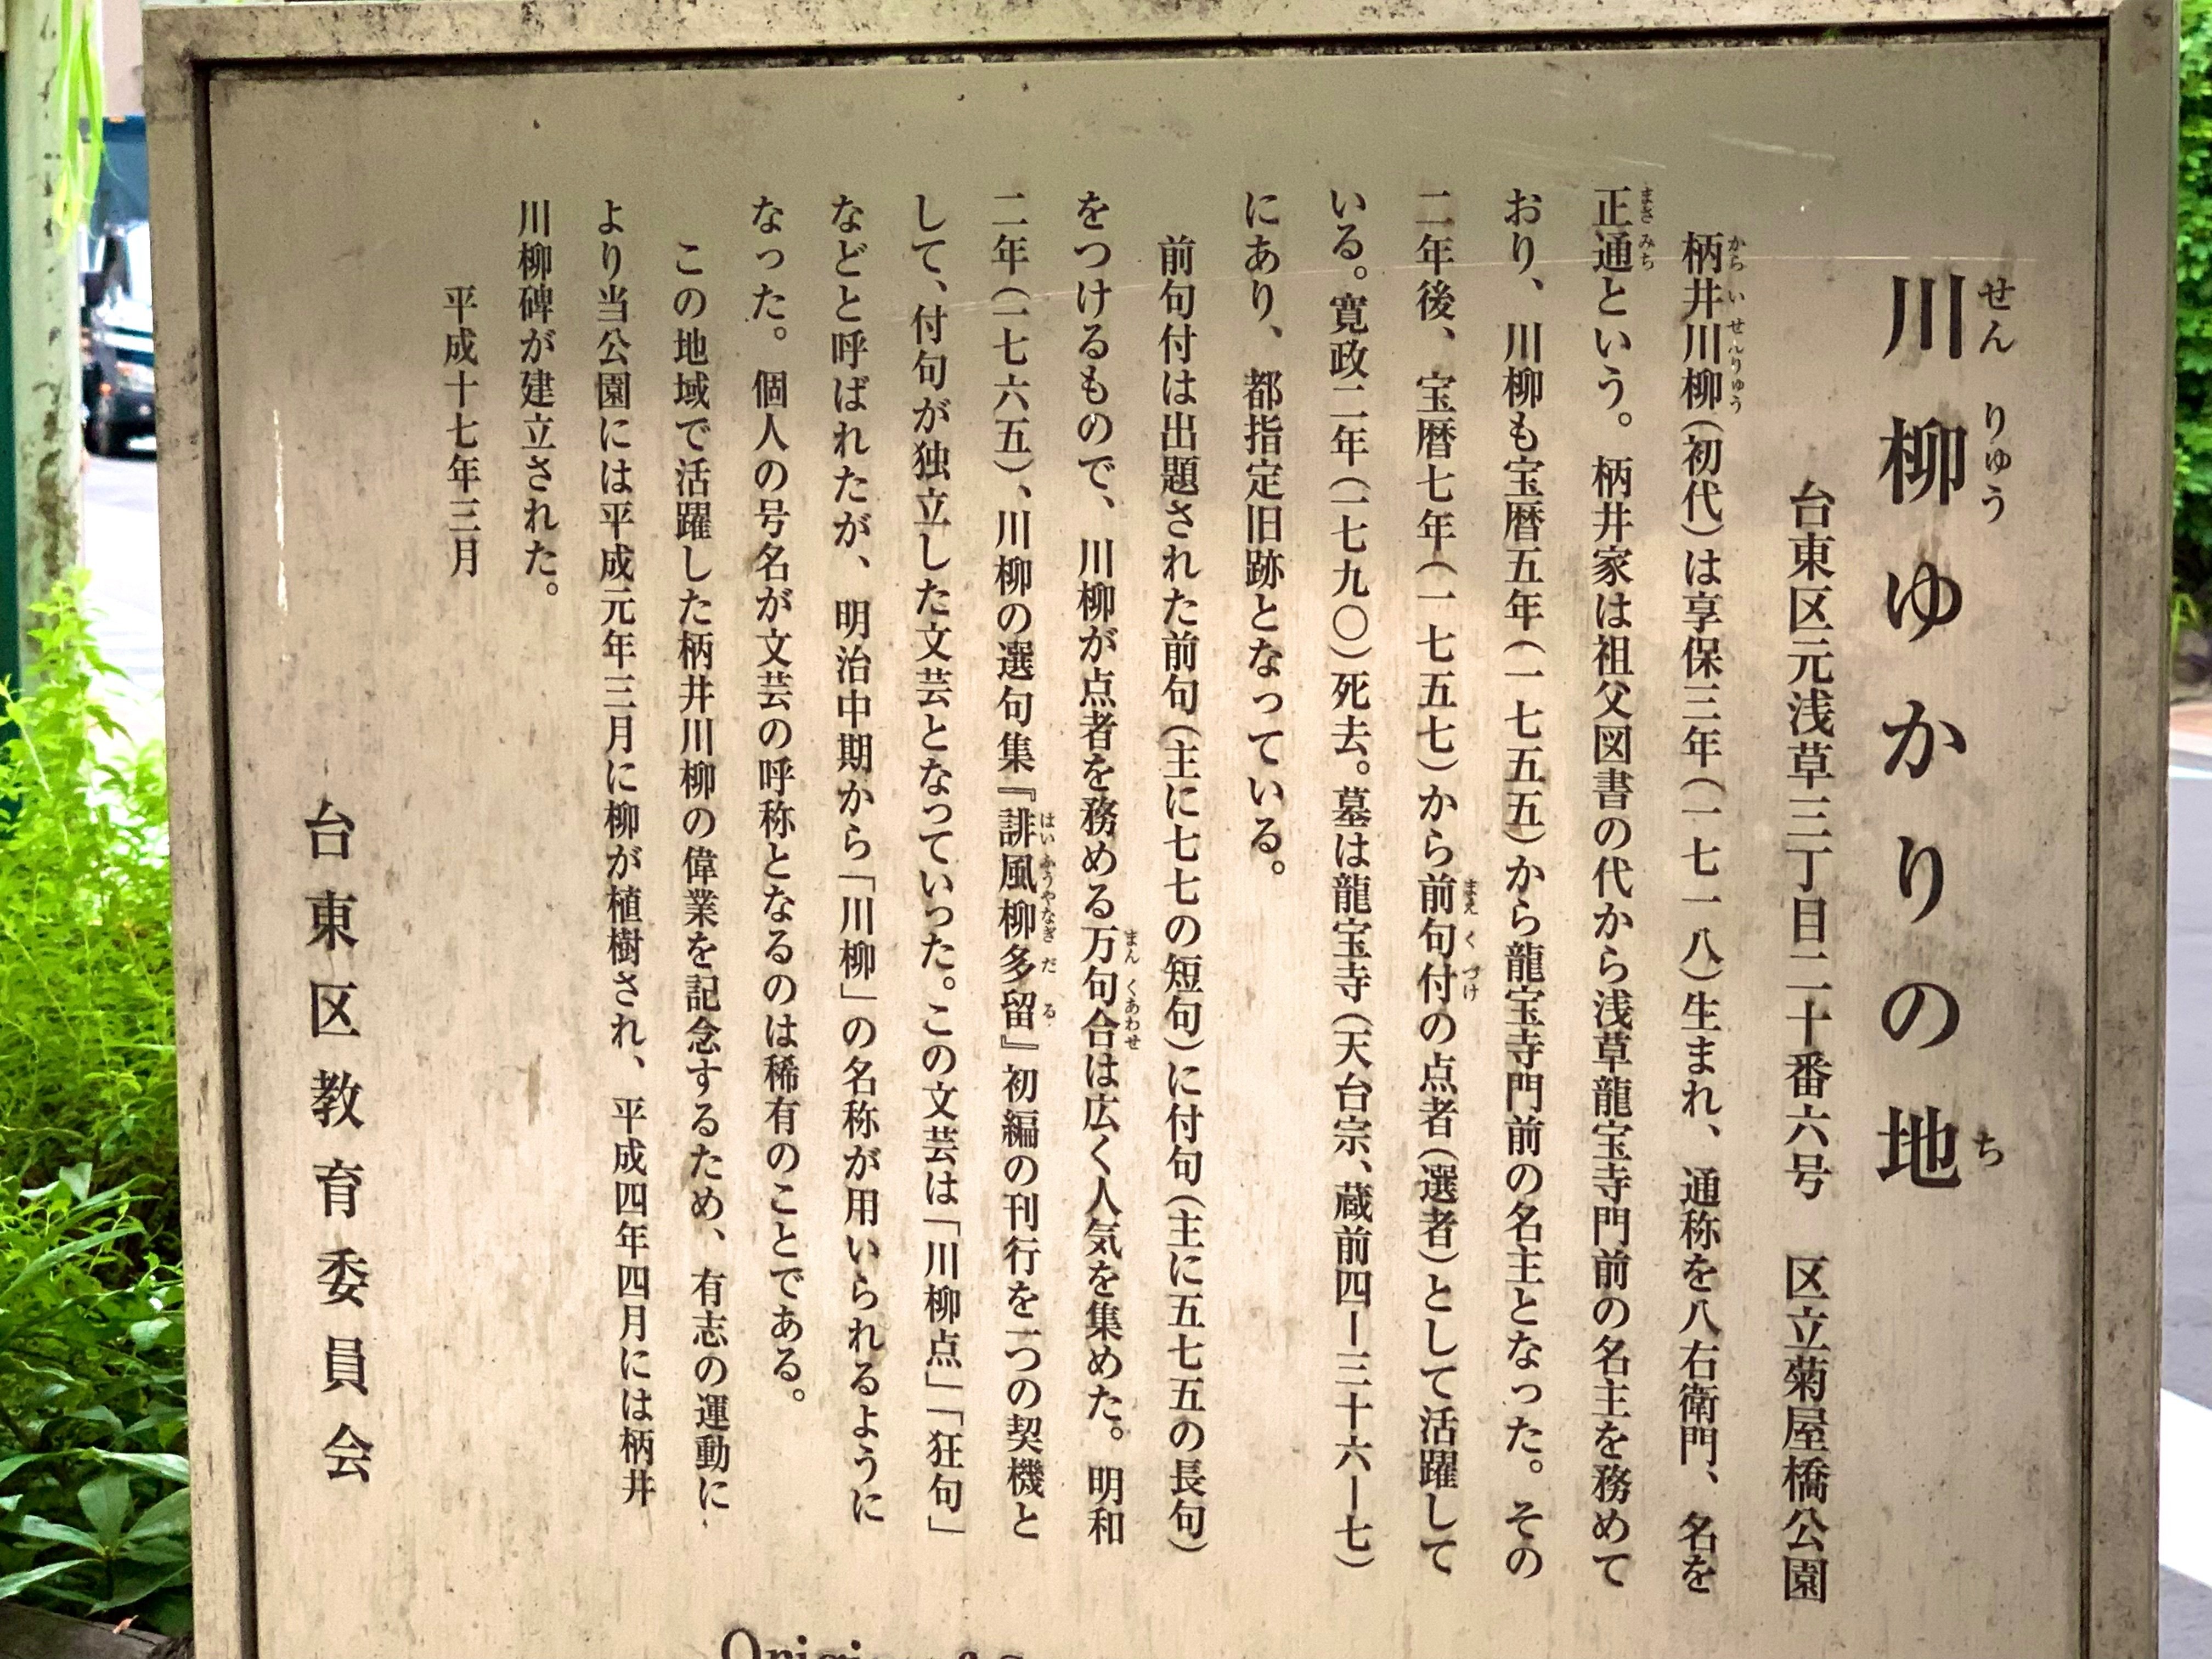 川柳ゆかりの地
せんりゅう ち
台東区元浅草三丁目二十番六号 区立菊屋橋公園
柄井川柳(初代)は享保三年(一七一八)生まれ、通称を八右衛門、名を
からいせんりゅう
正通という。柄井家は祖父図書の代から浅草龍宝寺門前の名主を務めて
まさみち
おり、川柳も宝暦五年(一七五五)から龍宝寺門前の名主となった。その
二年後、宝暦七年(一七五七)から前句付の点者(選者)として活躍して
まえくづけ
いる。寛政二年(一七九〇)死去。墓は龍宝寺(天台宗、蔵前四ー三十六ー七)
にあり、都指定旧跡となっている。
前句付は出題された前句(主に七七の短句)に付句(主に五七五の長句)
をつけるもので、川柳が点者を務める万句合は広く人気を集めた。明和
まんくあわせ
二年(一七六五)、川柳の選句集『誹風柳多留』初編の刊行を一つの契機と
はいふうやなぎだる
して、付句が独立した文芸となっていった。この文芸は「川柳点」「狂句」
などと呼ばれたが、明治中期から「川柳」の名称が用いられるように
なった。個人の号名が文芸の呼称となるのは稀有のことである。
この地域で活躍した柄井川柳の偉業を記念するため、有志の運動に
より当公園には平成元年三月に柳が植樹され、平成四年四月には柄井
川柳碑が建立された。
平成十七年三月
台東区教育委員会